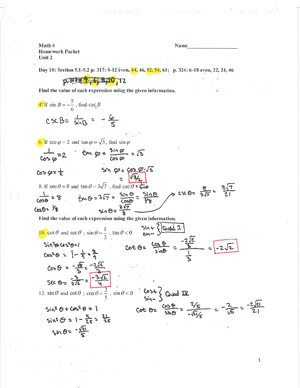 Math 4 Name
Homework Packet
Unit 2
Day 10: Section 5.1-5.2 p: 317: 8-12 even, 44, 46, 52, 54, 61; p. 324: 6-18 even, 22, 24, 46
Find the value of each expression using the given information.
4. If sin B = -5/6, find csc B
csc B = 1/sin B = -6/5
6. If sec φ = 2 and tan φ = √3, find sin φ
1/cos φ = 2 tan φ = sin φ/cos φ = √3
cos φ = 1/2 sin φ = cos φ · √3
√3/2
8. If sec θ = 8 and tan θ = 3√7, find csc θ
1/cos θ = 8 tan θ = 3√7 = sin θ/cos θ = sin θ/(1/8) csc θ = 8/(3√7) = 8√7/21
cos θ = 1/8 sin θ = 3√7/8
Find the value of each expression using the given information.
10. cot θ and sec θ ; sin θ = 1/3, tan θ < 0
sin + tan - Quad 2
sin²θ + cos²θ = 1
cos²θ = 1 - 1/9 = 8/9 cot θ = cos θ/sin θ = (-2√2/3)/(1/3) = -2√2
cos θ = -√8/3 = -2√2/3
sec θ = -3/(2√2) = -3√2/4
12. sin θ and cot θ ; cos θ = 2/5, sin θ < 0
cos + sin - Quad IV
sin²θ + cos²θ = 1
sin²θ = 1 - 4/25 = 21/25 cot θ = cos θ/sin θ = (2/5)/(-√21/5) = -2/√21 = -2√21/21
sin θ = -√21/5
1